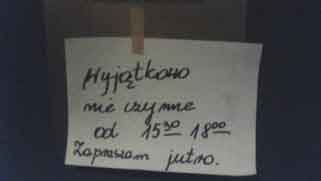 Wyjątkowo
nie czynne
od 15³⁰ 18⁰⁰
Zapraszam jutro.